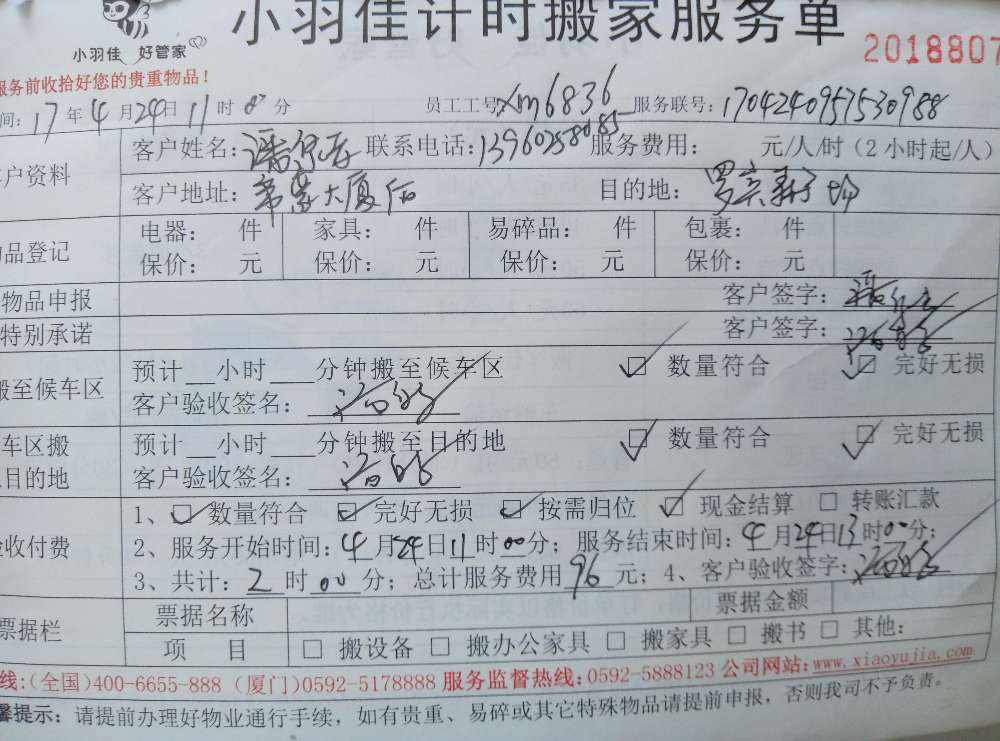 小羽佳计时搬家服务单
小羽佳 好管家
2018807
服务前收拾好您的贵重物品!
间: 17年4月24日11时0分 员工工号: xm6836 服务联号: 1704240957530988
户资料
客户姓名: 联系电话: 13960258085 服务费用: 元/人/时 (2小时起/人)
客户地址: 大厦后 目的地:
品登记
电器: 件 家具: 件 易碎品: 件 包裹: 件
保价: 元 保价: 元 保价: 元 保价: 元
物品申报 客户签字:
特别承诺 客户签字:
搬至候车区
预计__小时___分钟搬至候车区 ☑ 数量符合 ☑ 完好无损
客户验收签名:
车区搬
目的地
预计__小时___分钟搬至目的地 ☑ 数量符合 ☑ 完好无损
客户验收签名:
验收付费
1、☑ 数量符合 ☑ 完好无损 ☑ 按需归位 ☑ 现金结算 □ 转账汇款
2、服务开始时间: 4月24日11时00分; 服务结束时间: 4月24日13时00分;
3、共计: 2时00分; 总计服务费用96元; 4、客户验收签字:
票据栏
票据名称 票据金额
项 目 □ 搬设备 □ 搬办公家具 □ 搬家具 □ 搬书 □ 其他:
线:(全国)400-6655-888 (厦门)0592-5178888 服务监督热线: 0592-5888123 公司网站: www.xiaoyujia.com
馨提示: 请提前办理好物业通行手续, 如有贵重、易碎或其它特殊物品请提前申报, 否则我司不予负责。